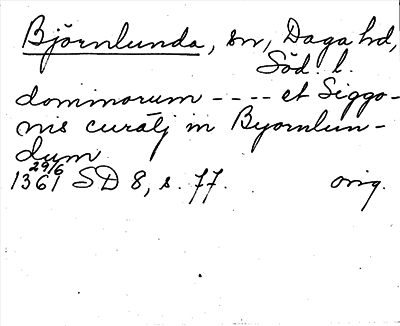 Björnlunda, sn, Daga hd,
Söd. l.
dominorum ---- et Siggo-
nis curatj in Byornlun-
dum
29/6
1361 SD 8, s. 77. orig.